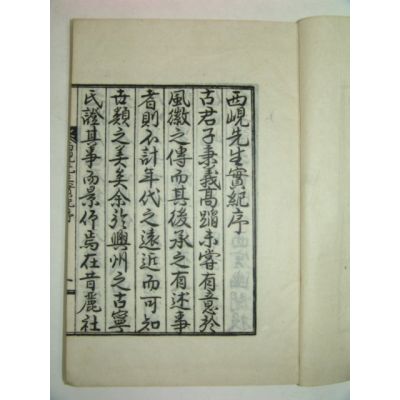 西峴先生實紀序
古君子秉義高蹈未嘗有意於
風徽之傳而其後承之有述事
者則不計年代之遠近而可知
世類之美矣余於興州之古寧
氏證其事而景仰焉在昔麗社